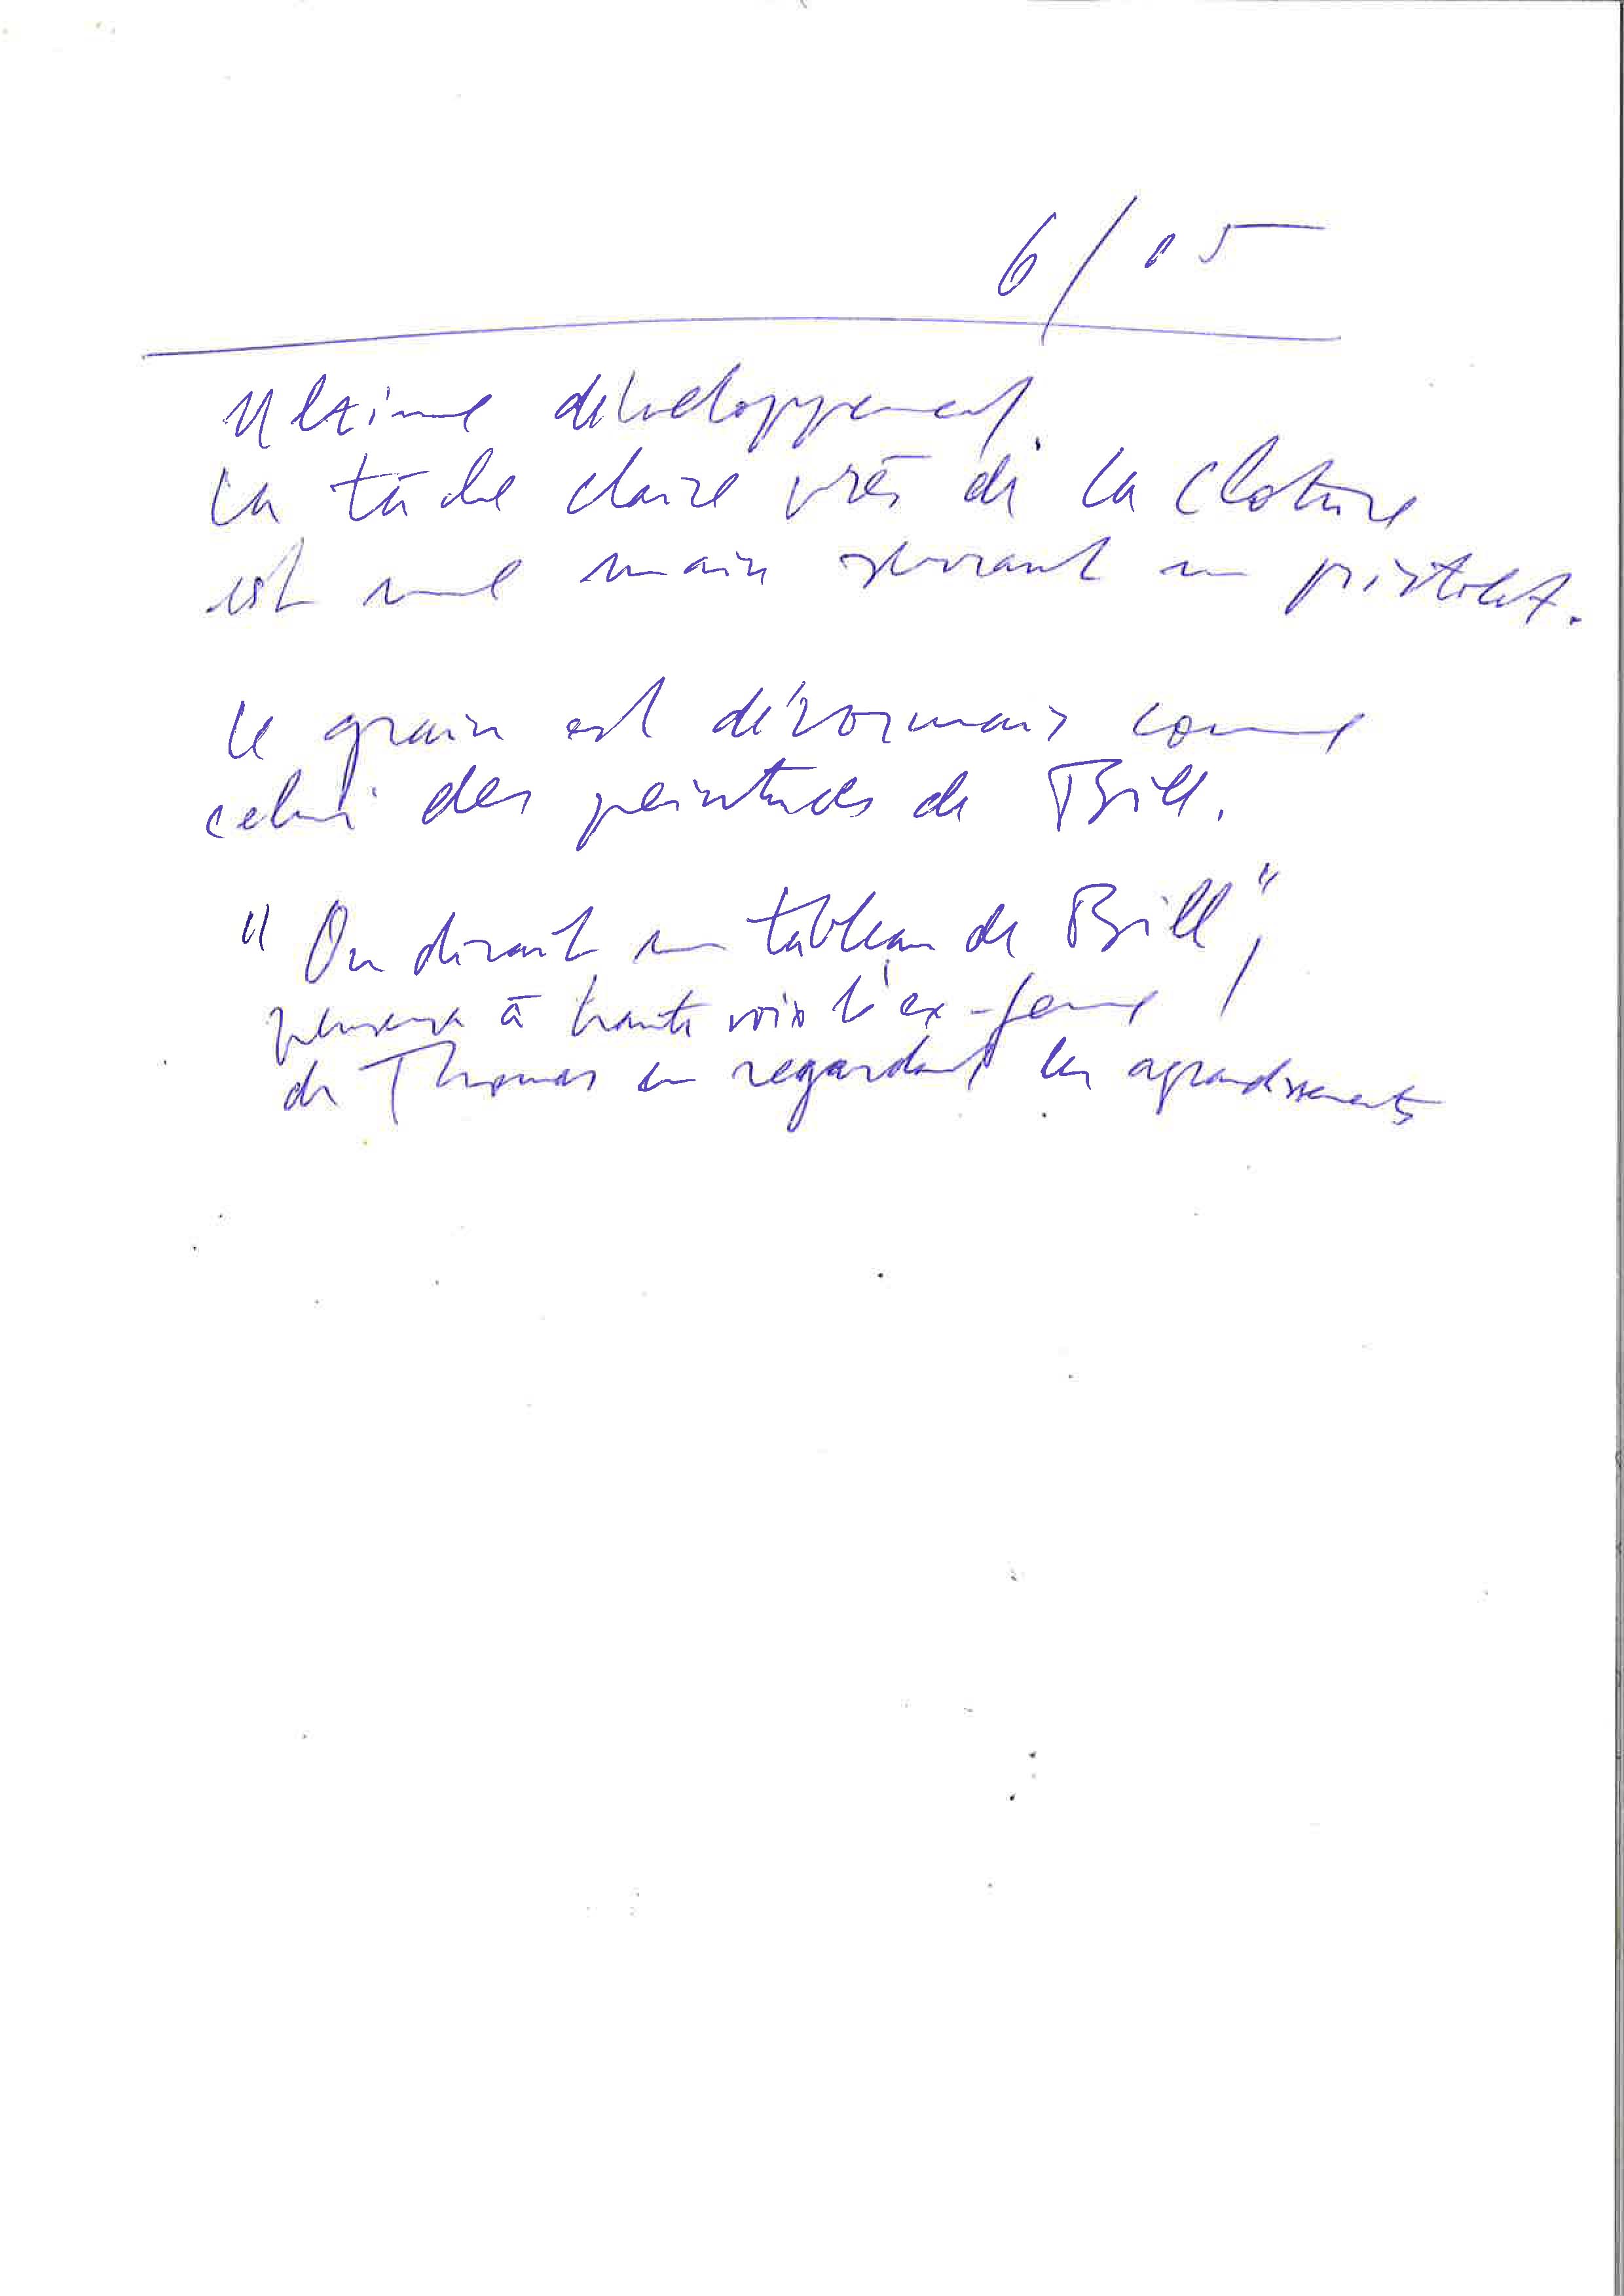 6/05
Ultime développement.
la tâche claire près de la cloture
est une main serrant un pistolet.
le grain est désormais comme
celui des peintures de Bill.
"On dirait un tableau de Bill",
pensera à haute voix l'ex-femme
de Thomas en regardant les agrandissements